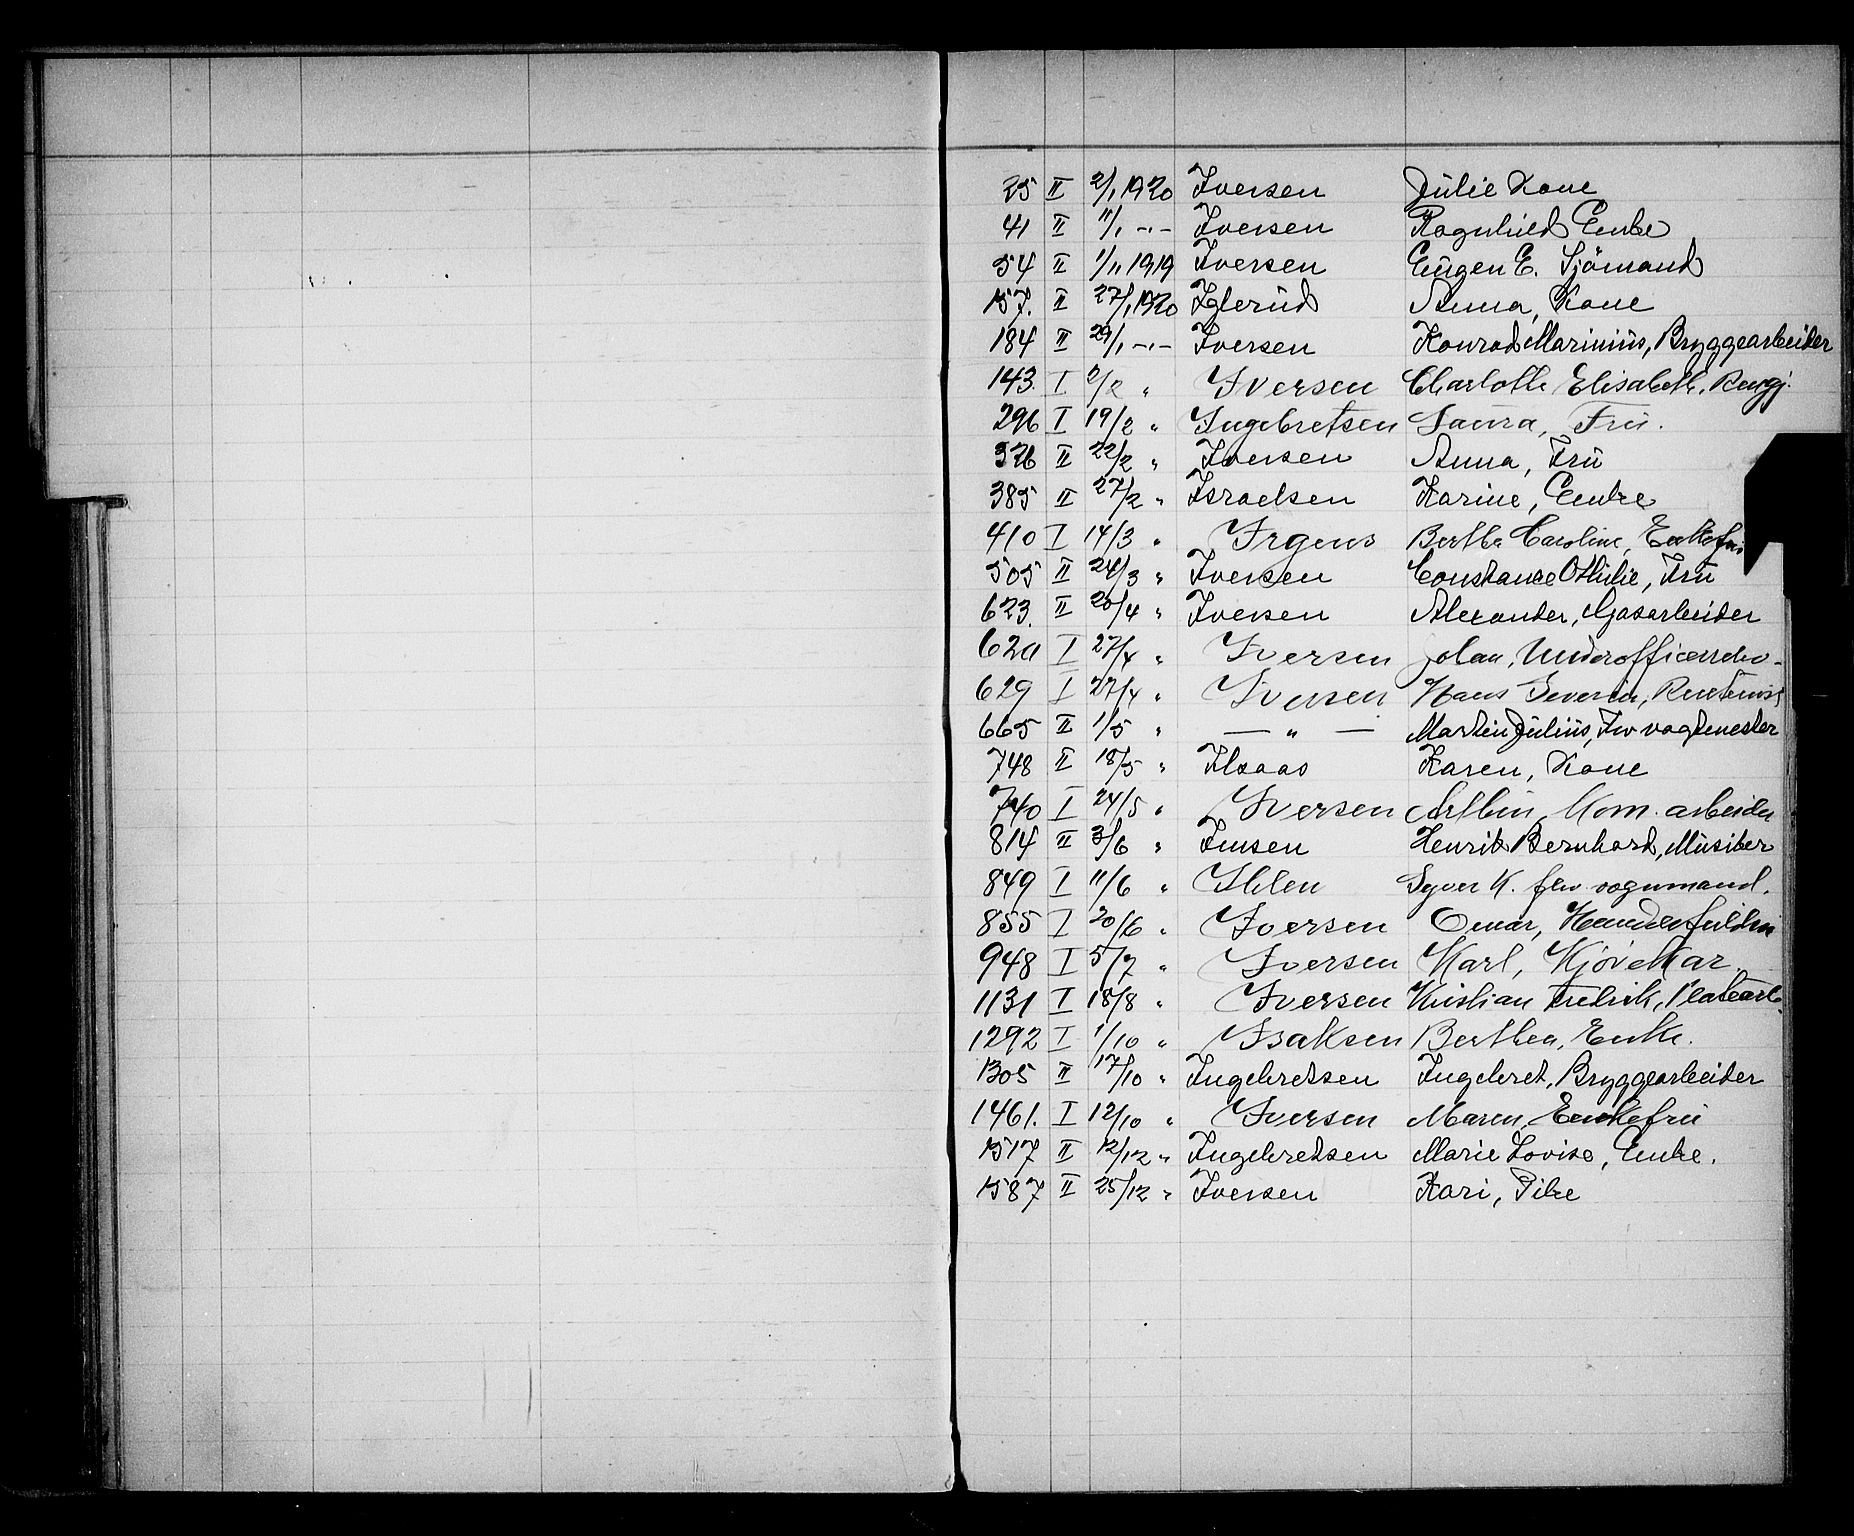 25 II 2/1 1920 Iversen Julie Kone
41 II 11/1 -"- Iversen Ragnhild Enke
54 II 1/11 1919 Iversen Eugen E. Sjömand
157. II 27/1 1920 Iglerud Anna, Kone
184 II 29/1 -"- Iversen Konrad Marinius, Bryggearbeider
143. I 2/2 " Iversen Charlotte Elisabeth,
296 I 19/2 " Ingebretsen Laura, Fru.
326 II 22/2 " Iversen Anna, Fru
385 II 27/2 " Israelsen Karine, Enke
410 I 14/3 " Irgens Berthe Caroline, Enkefru
505 II 24/3 " Iversen Constance Othilie, Fru
623. II 20/4 " Iversen Alexander, Gasarbeider
620 I 27/4 " Iversen Johan,
629 I 27/4 " Iversen Hans Severin,
665 II 1/5 " — " — Martin Julius, Fhv vagtmester
748 II 18/5 " Ilsaas Karen, Kone
740 I 24/5 " Iversen Kom. arbeider
814 II 3/6 " Imsen Henrik Bernhard, Musiker
849 I 11/6 " Ihlen Syver K. fhv. vognmand.
855 I 20/6 " Iversen Omar,
948 I 5/7 " Iversen Karl,
1131 I 18/8 " Iversen Kristian Fredrik, Platearb.
1292 I 1/10 " Isaksen Berthea, Enke.
1305 II 17/10 " Ingebretsen Ingebret, Bryggearbeider
1461. I 12/10 " Iversen Maren, Enkefru
1517 II 12/12 " Ingebretsen Marie Lovise, Enke.
1587 II 25/12 " Iversen Kari, Pike